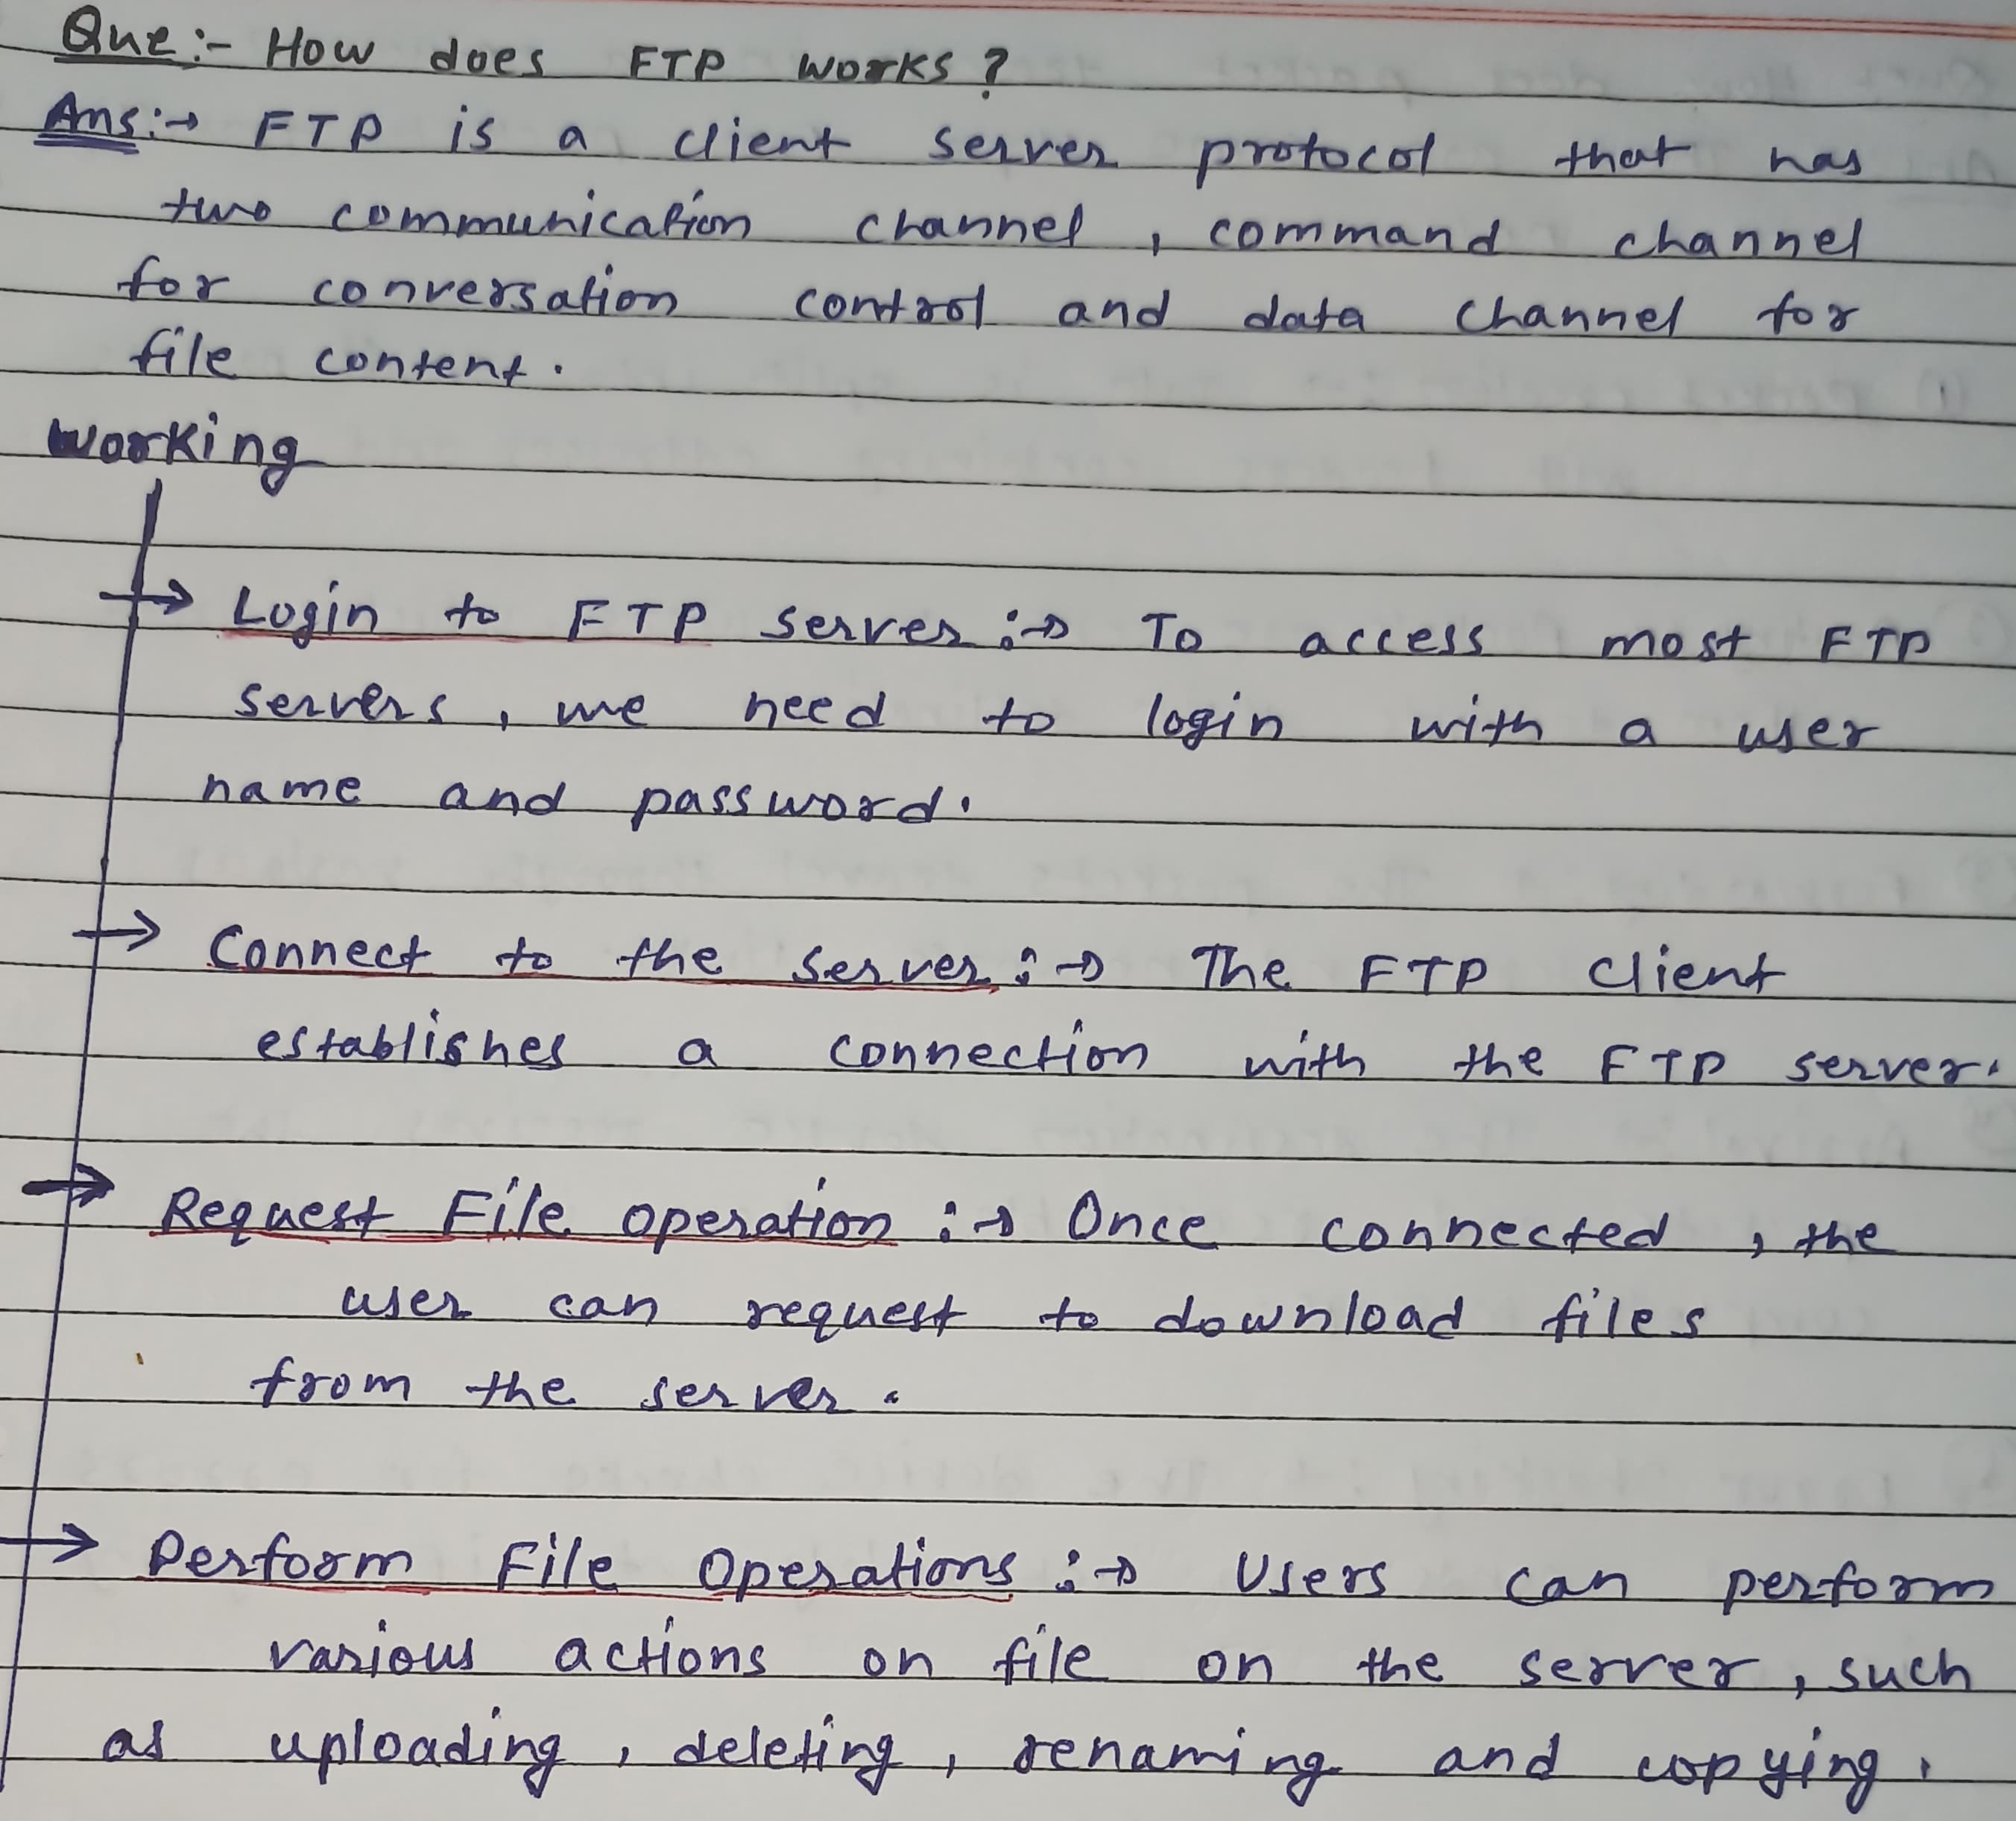 Que:- How does FTP works?
Ans:→ FTP is a client server protocol that has
two communication channel, command channel
for conversation control and data channel for
file content.
working
→ Login to FTP server:→ To access most FTP
servers, we need to login with a user
name and password.
→ Connect to the server:→ The FTP client
establishes a connection with the FTP server.
→ Request File operation:→ Once connected, the
user can request to download files
from the server.
→ Perform File Operations:→ Users can perform
various actions on file on the server, such
as uploading, deleting, renaming and copying.